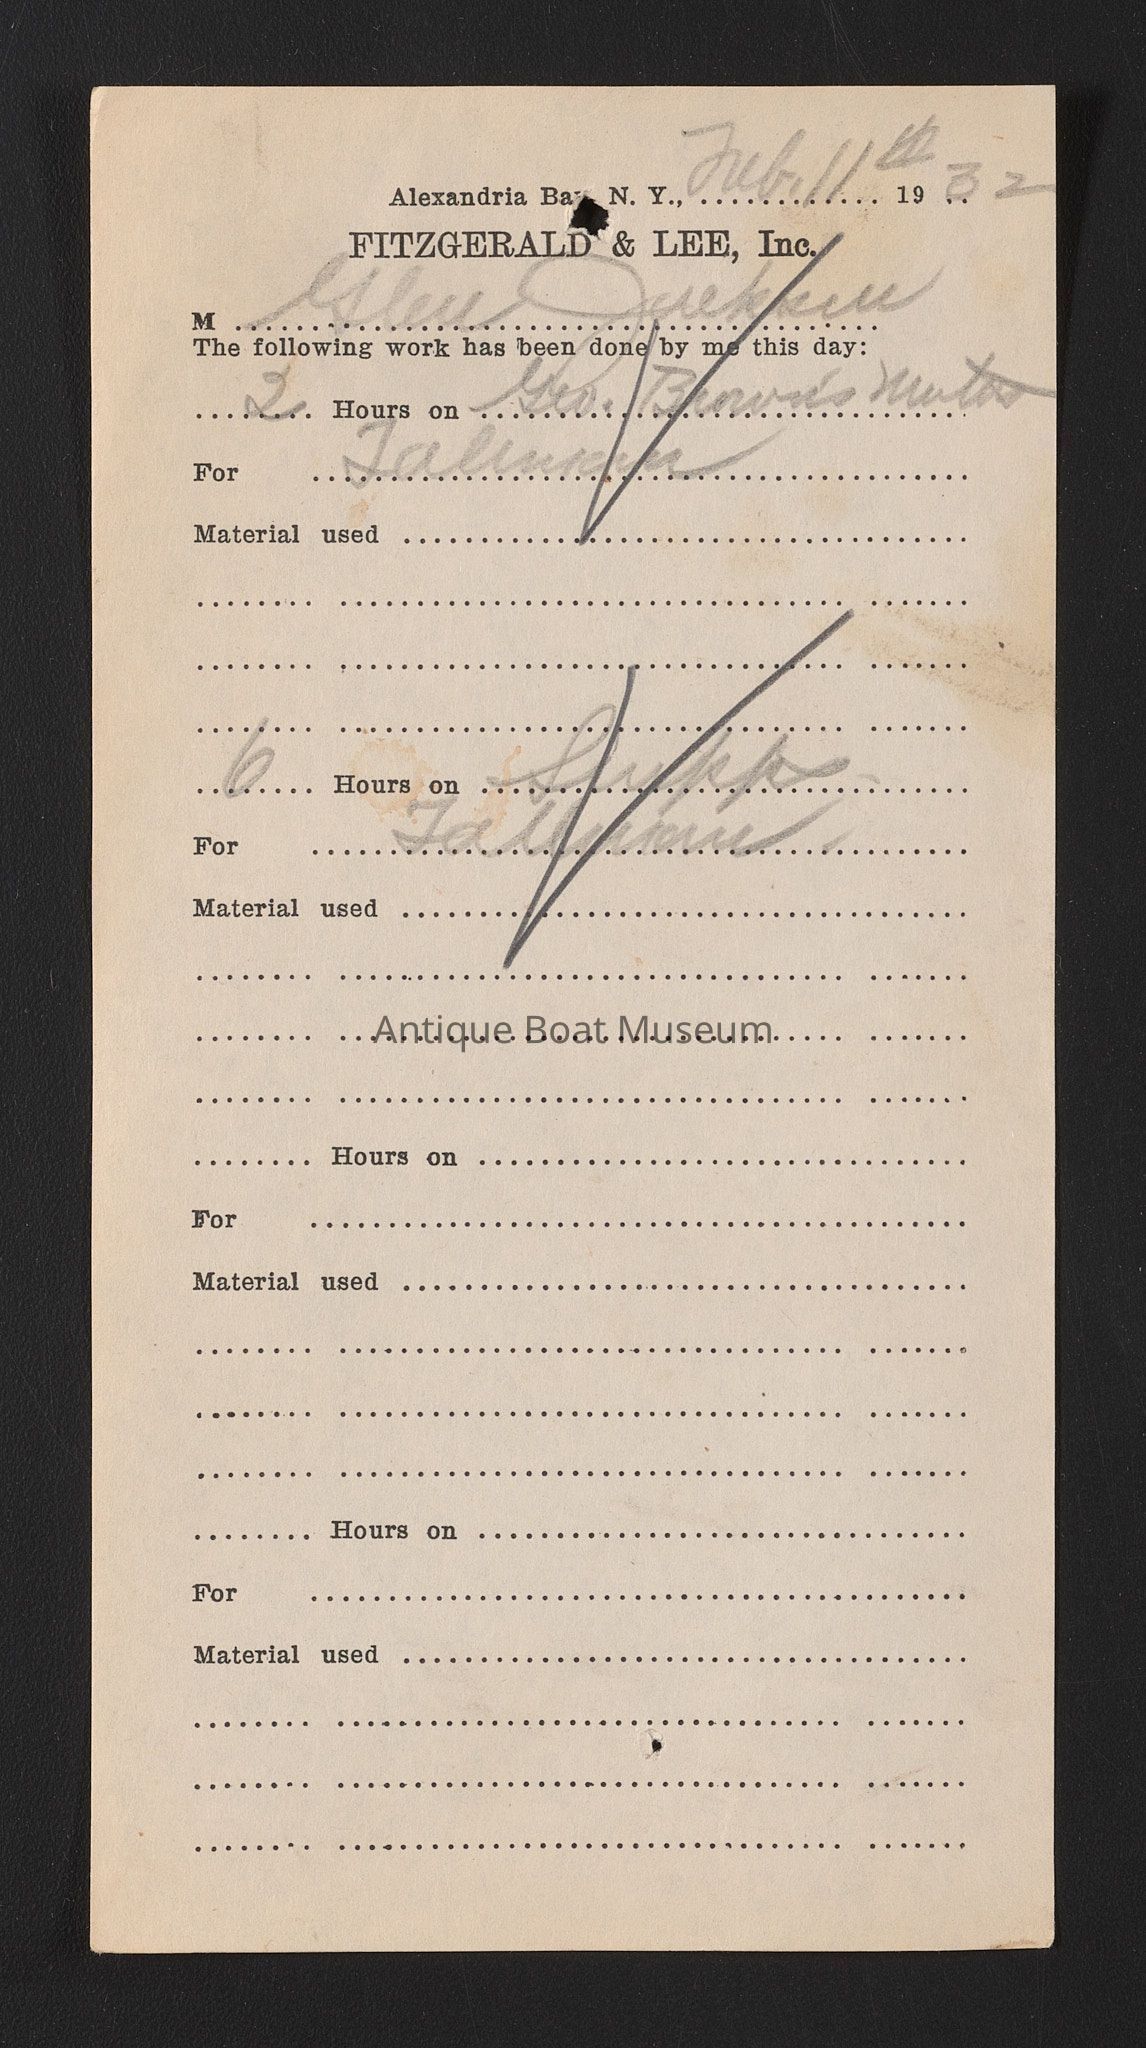 Alexandria Bay, N. Y., Feb. 11th 1932
FITZGERALD & LEE, Inc.
M Glen
The following work has been done by me this day:
2 Hours on Geo. Brown's Motor
For
Material used
6 Hours on Supp
For
Material used
Antique Boat Museum
Hours on
For
Material used
Hours on
For
Material used